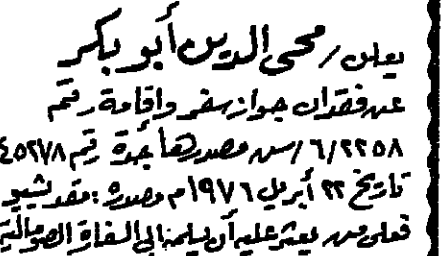 يعلن / محى الدين أبو بكر
عن فقدان جواز سفر واقامة رقم
٦/٢٢٥٨ /س مصدرها جدة رقم ٤٥٢٧٨
تاريخ ٢٢ أبريل ١٩٧٦م مصدره : مقديشيو
فعلى من يعثر عليه أن يسلمه الى السفارة الصومالية